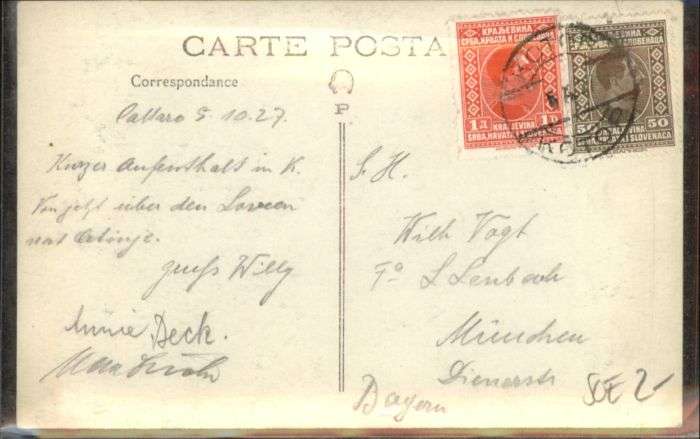 CARTE POSTA
Correspondance
P
Cattaro 5.10.27.
Kurzer Aufenthalt in K.
Von jetzt über den Lovcen
nach Cetinje.
gruss Willy
Annie Beck.
Max
S. H.
Wilh Vogt
Fa L Lenbach
München
Dienerstr
Bayern
SOE 2-
КРАЉЕВИНА
СРБА, ХРВАТА И СЛОВЕНАЦА
1 Д 1 D
KRALJEVINA
SRBA, HRVATA
КРАЉЕВИНА
СЛОВЕНАЦА
50 50
SLOVENACA